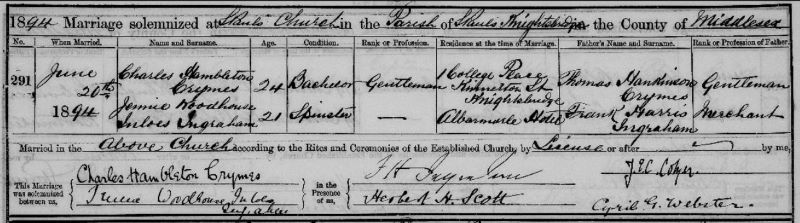 1894 Marriage solemnized at St Pauls Church in the Parish of St Pauls Knightsbridge in the County of Middlesex
No. When Married. Name and Surname. Age. Condition. Rank or Profession. Residence at the time of Marriage. Father's Name and Surname. Rank or Profession of Father.
291 June 20th 1894 Charles Hambleton Crymes 24 Bachelor Gentleman 1 College Place Kinnerton St Knightsbridge Thomas Hankinson Crymes Gentleman
Jennie Woodhouse Inloes Ingraham 21 Spinster — Albermarle Hotel Frank Harris Ingraham Merchant
Married in the Above Church according to the Rites and Ceremonies of the Established Church, by License or after by me,
This Marriage was solemnized between us, Charles Hambleton Crymes
Woodhouse Inloes Ingraham
in the Presence of us, F H
Herbert H. Scott
Cyril G. Webster